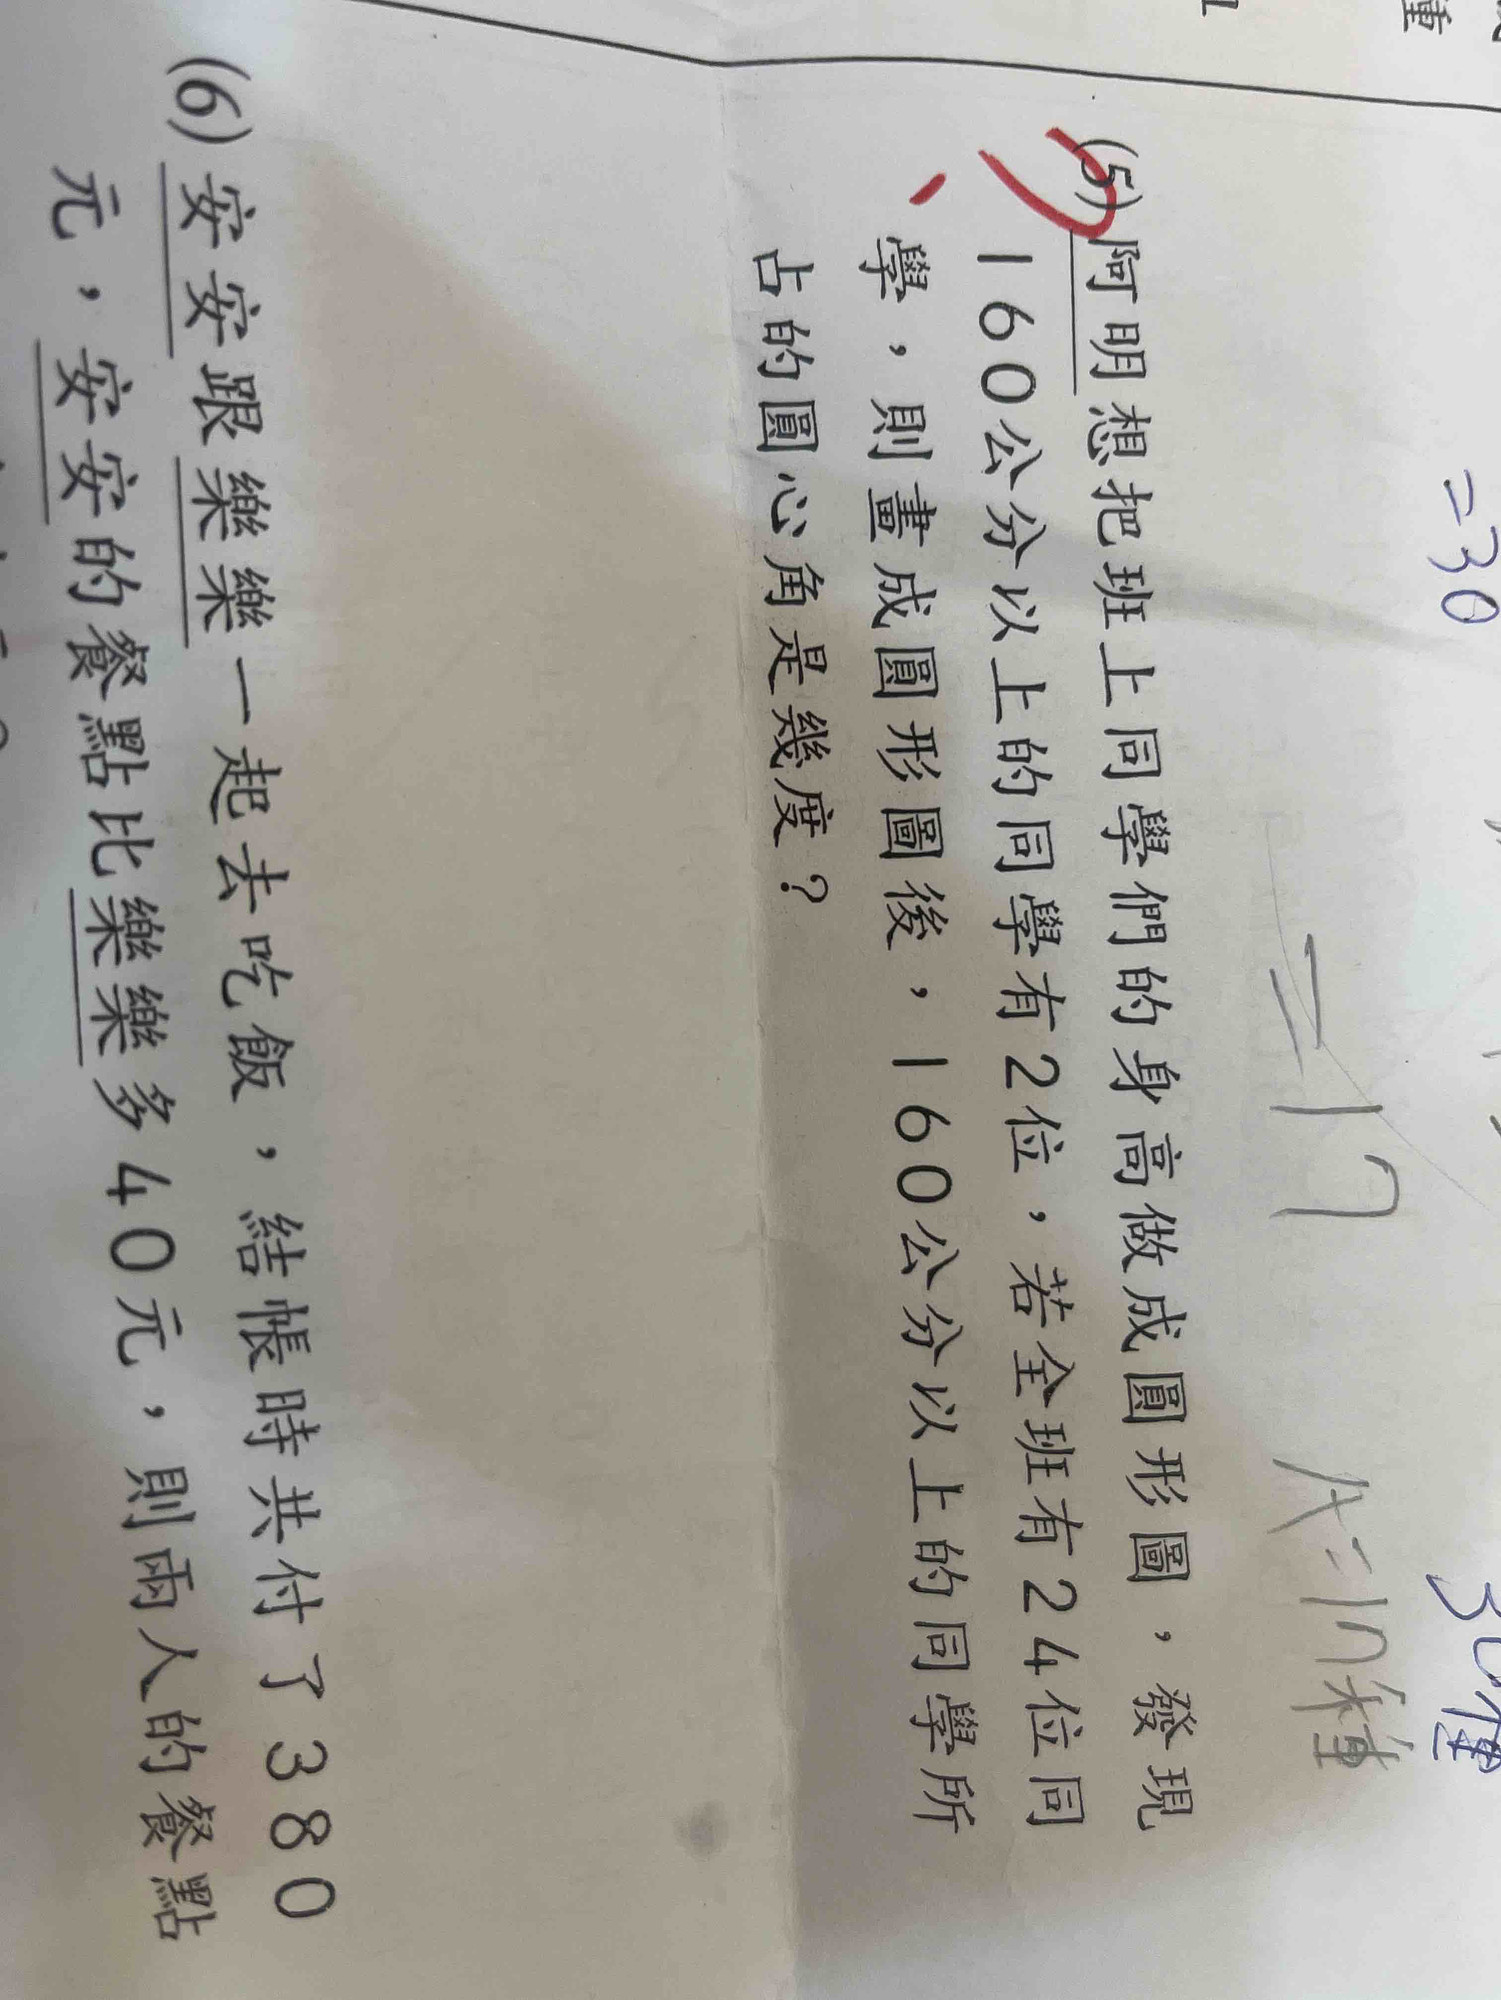 =30
30種
=17
A=17種
(5)阿明想把班上同學們的身高做成圓形圖，發現
160公分以上的同學有2位，若全班有24位同
學，則畫成圓形圖後，160公分以上的同學所
占的圓心角是幾度？
(6)安安跟樂樂一起去吃飯，結帳時共付了380
元，安安的餐點比樂樂多40元，則兩人的餐點